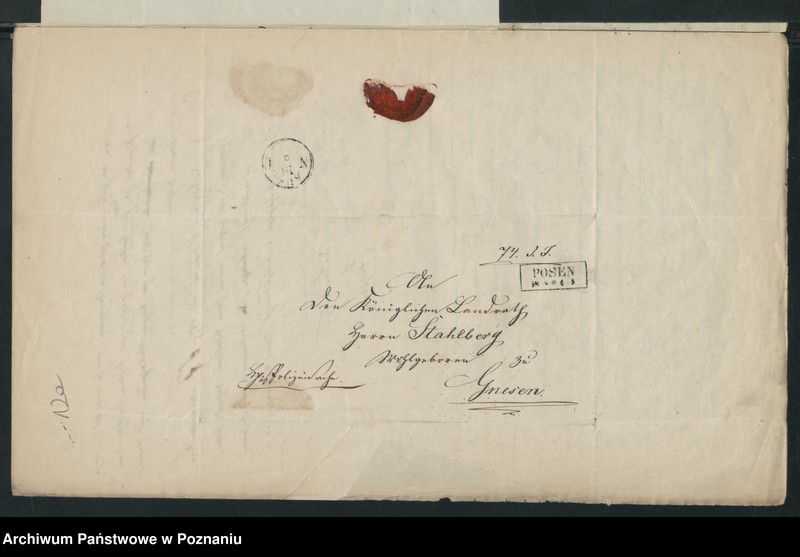 74. J. J.
POSEN
An
Den Königlichen Landrath
Herrn Stahlberg
Wohlgeboren zu
Gnesen.
Polizeisache.
N
Archiwum Państwowe w Poznaniu